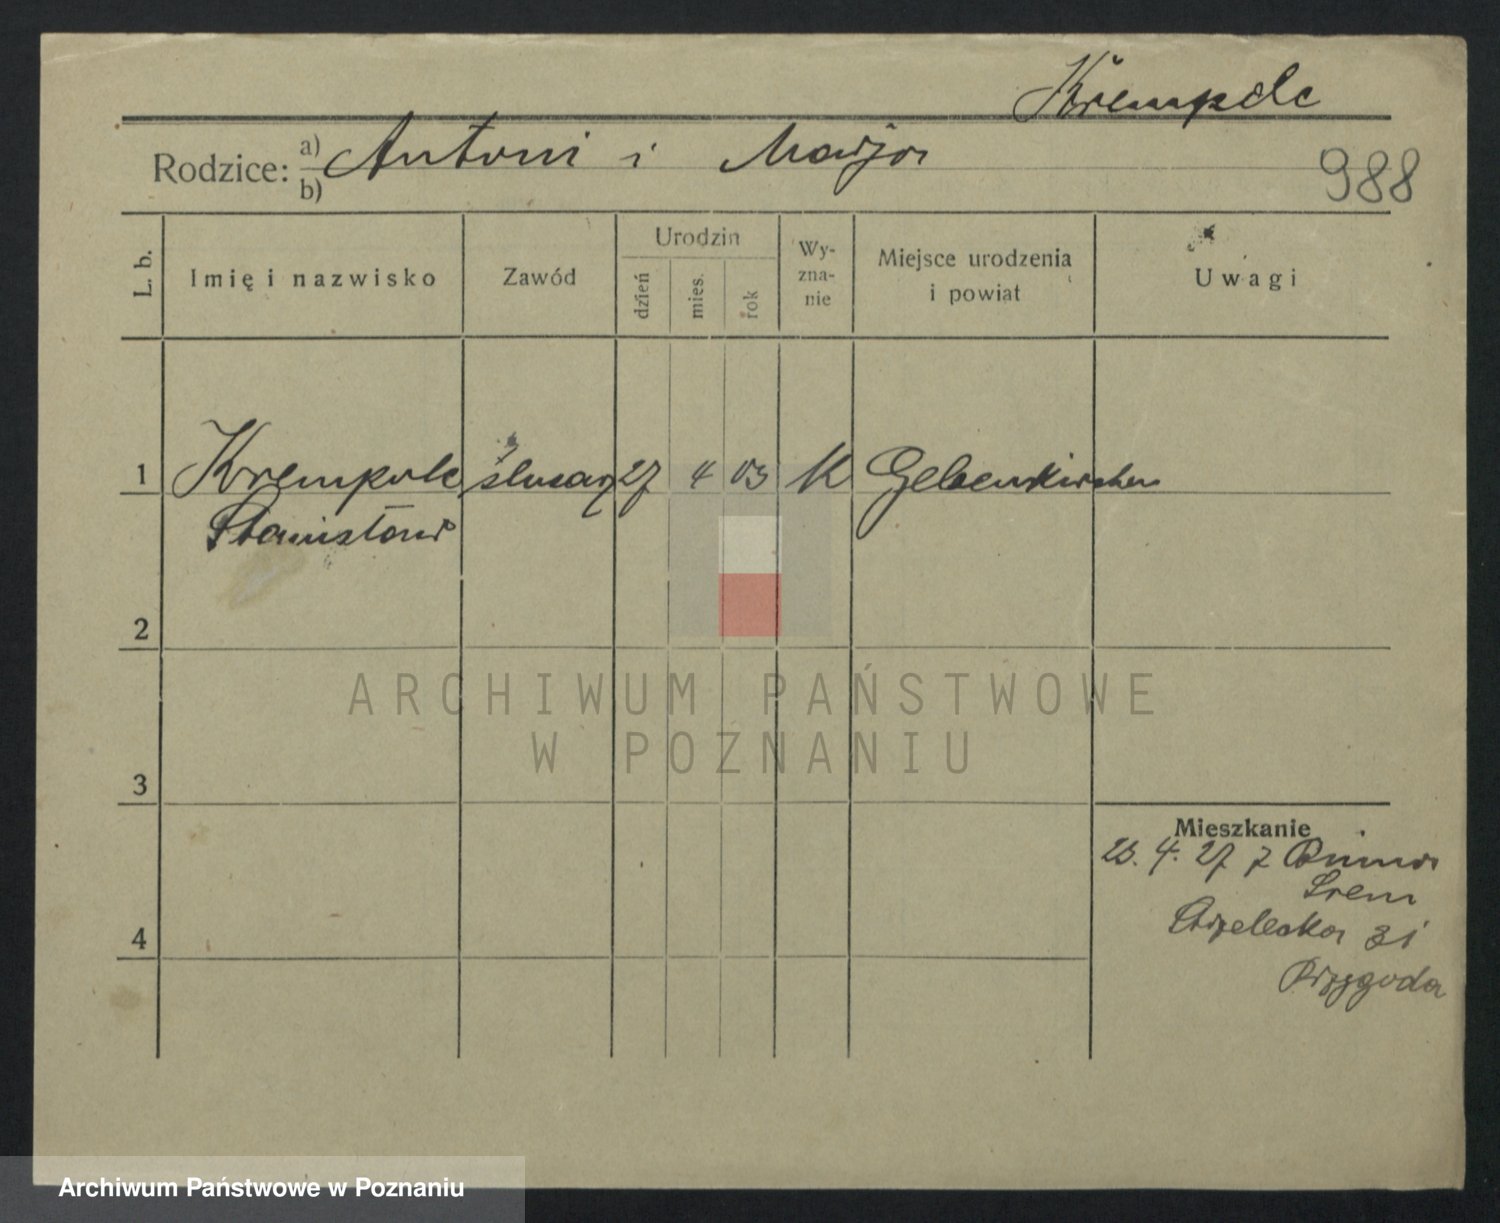 Krempelc
Rodzice: a) Antoni i Marja
b)
988
L. b.
Imię i nazwisko
Zawód
Urodzin
dzień
mies.
rok
Wy-
zna-
nie
Miejsce urodzenia
i powiat
Uwagi
1 Krempelc ślusarz 27 4 03 K Gelsenkirchen
Stanisław
2
3
4
Mieszkanie
23. 4. 27 z
Śrem
Strzelecka 31
Przygoda
ARCHIWUM PAŃSTWOWE
W POZNANIU
Archiwum Państwowe w Poznaniu